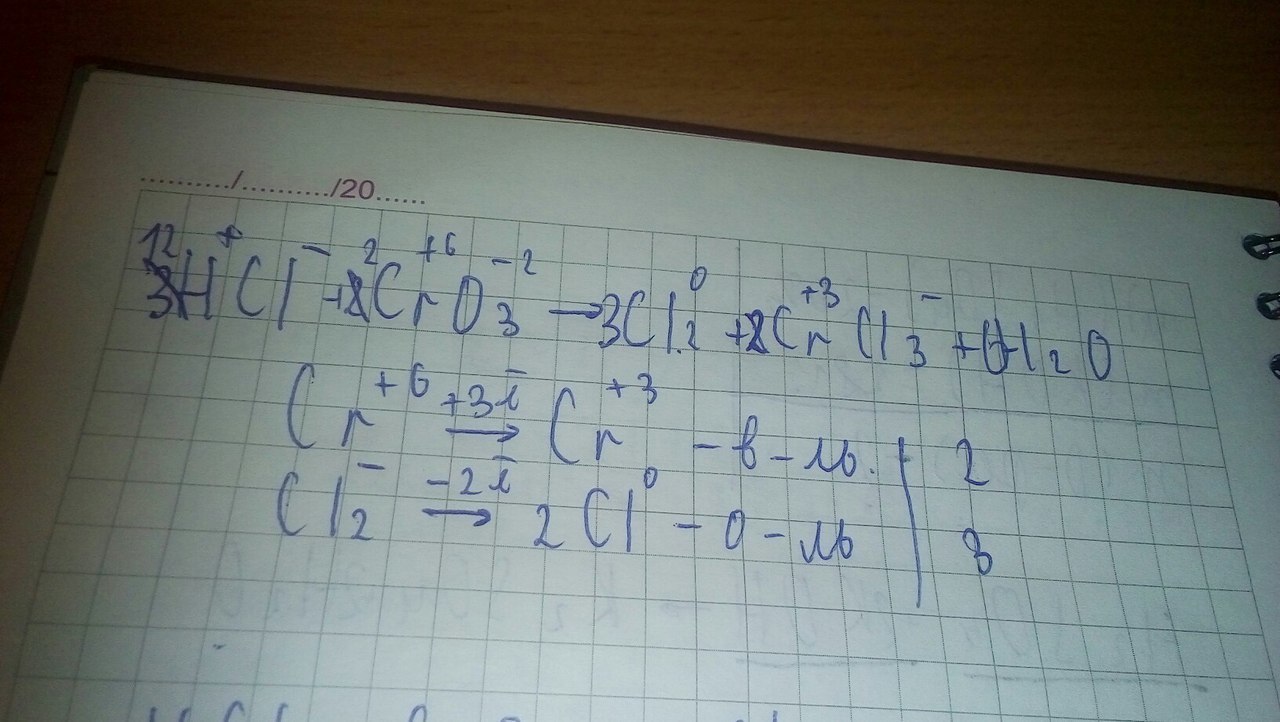 ........../........../20......
12HCl⁺⁻ + 2Cr⁺⁶O₃⁻² → 3Cl₂⁰ + 2Cr⁺³Cl₃⁻ + 6H₂O
Cr⁺⁶ +3ē → Cr⁺³ - в-ль. | 2
Cl₂⁻ -2ē → 2Cl⁰ - о-ль | 3